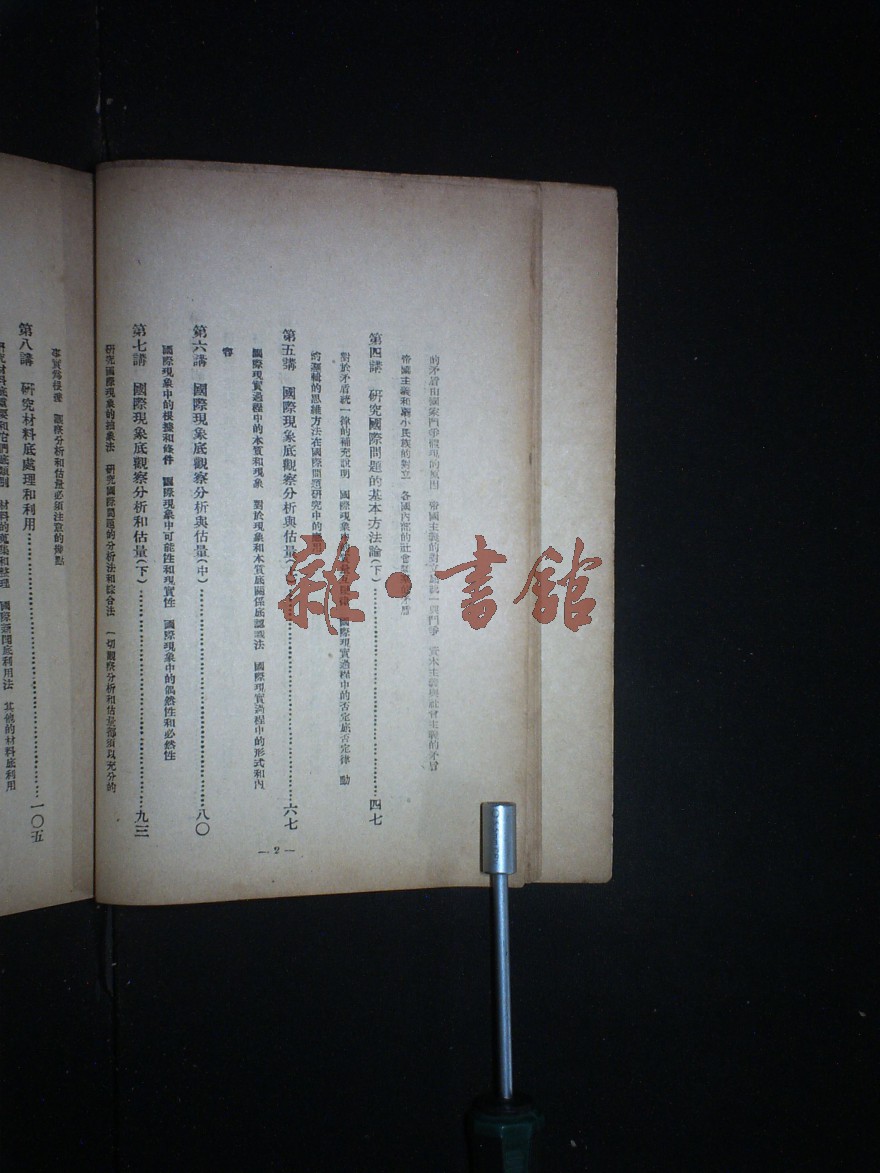 的矛盾和國家鬥爭的現的原因 帝國主義的對立 統一與鬥爭 資本主義與社會主義的矛盾
帝國主義和弱小民族的對立 各國內部的社會 矛盾
第四講 研究國際問題的基本方法論(下)…………四七
對於矛盾統一律的補充說明 國際現象 國際現實過程中的否定底否定律 動
的邏輯的思維方法在國際問題研究中的應用
第五講 國際現象底觀察分析與估量(…………六七
國際現實過程中的本質和現象 對於現象和本質底關係底認識法 國際現實過程中的形式和內
容
第六講 國際現象底觀察分析與估量(中)…………八〇
國際現象中的根據和條件 國際現象中可能性和現實性 國際現象中的偶然性和必然性
第七講 國際現象底觀察分析和估量(下)…………九三
研究國際現象的抽象法 研究國際問題的分析法和綜合法 一切觀察分析和估量都須以充分的
— 2 —
事實為根據 觀察分析和估量必須注意的幾點
第八講 研究材料底處理和利用…………一〇五
研究材料底重要和它們底類別 材料的蒐集和整理 國際新聞底利用法 其他的材料底利用
雜·書館